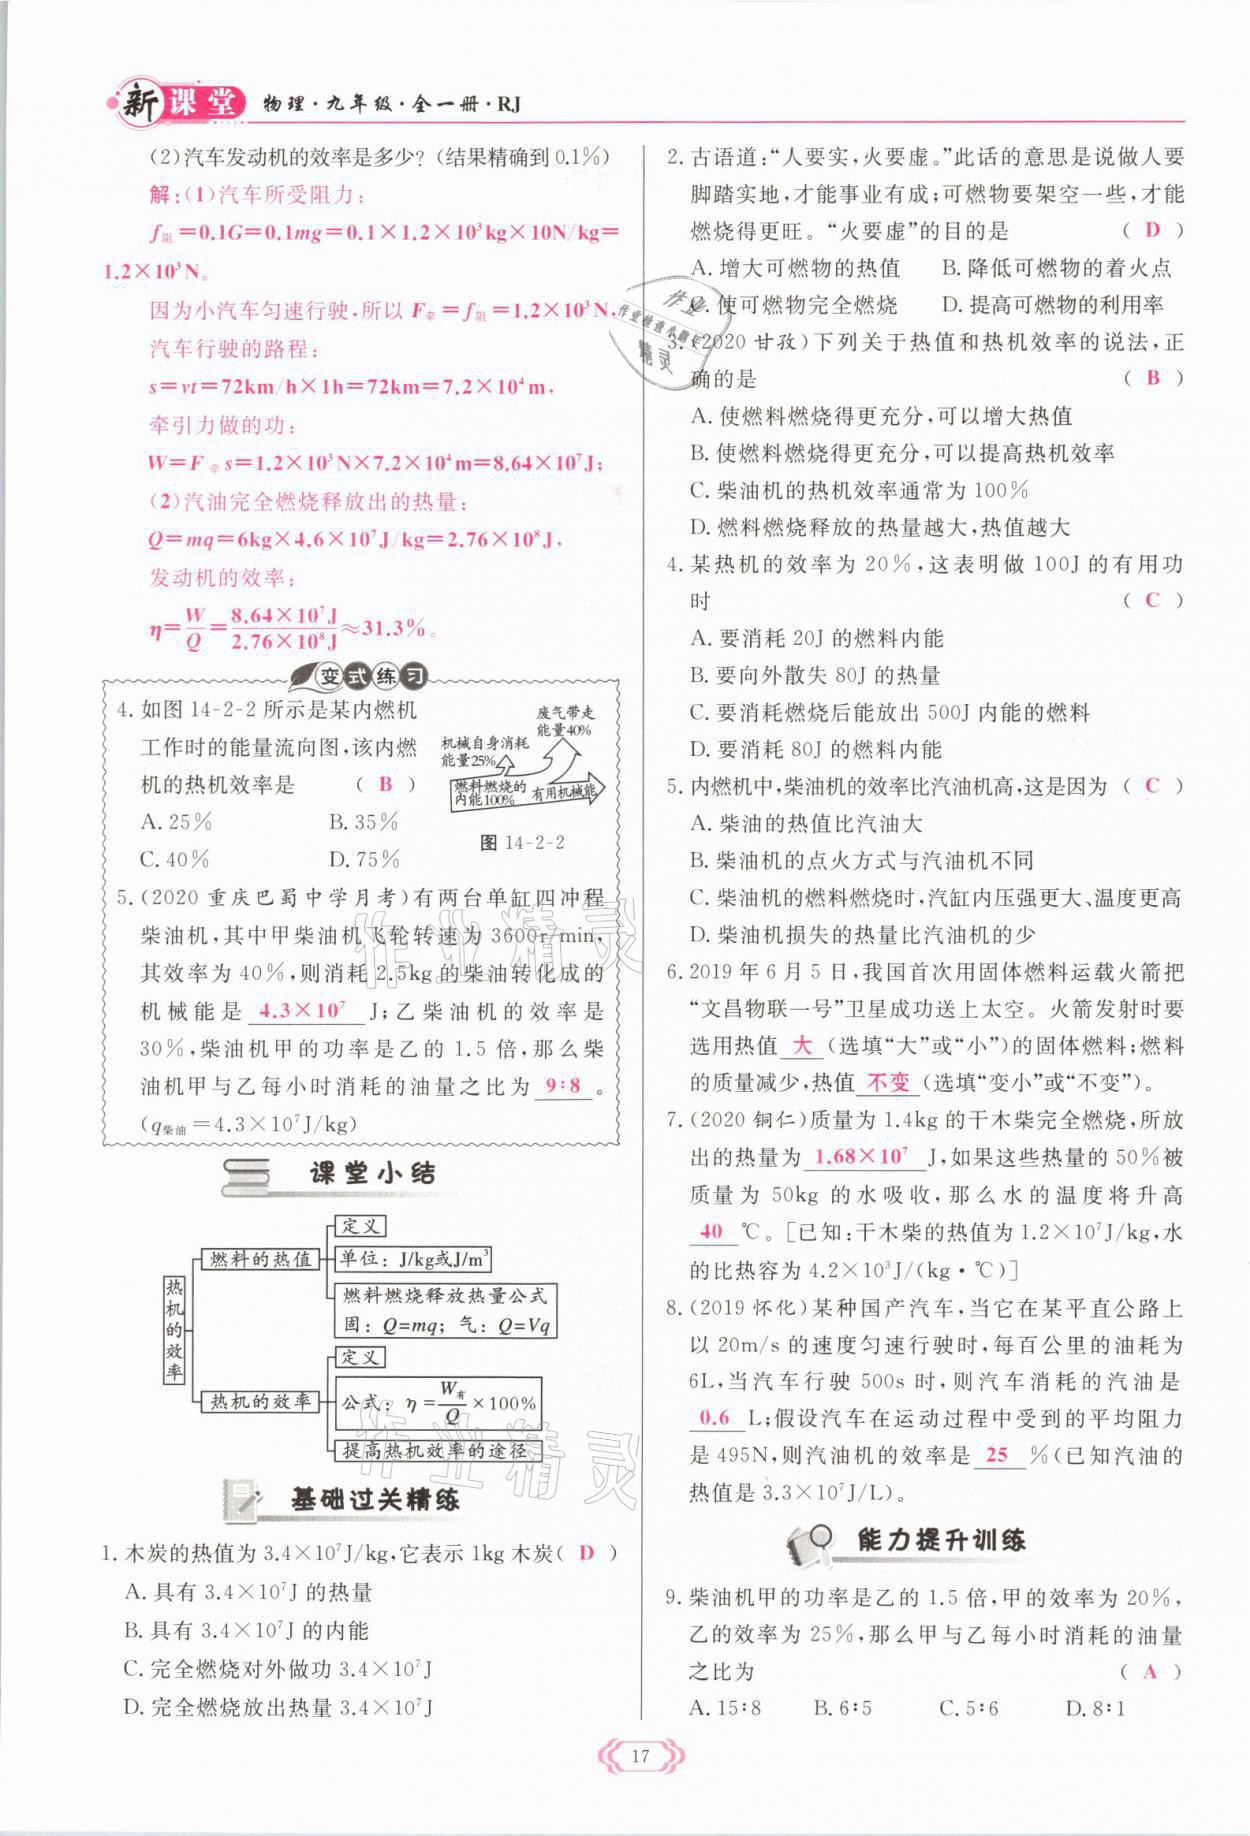 新课堂 物理·九年级·全一册·RJ
(2)汽车发动机的效率是多少?(结果精确到0.1%)
解:(1)汽车所受阻力:
f阻=0.1G=0.1mg=0.1×1.2×10³kg×10N/kg=
1.2×10³N。
因为小汽车匀速行驶,所以F牵=f阻=1.2×10³N,
汽车行驶的路程:
s=vt=72km/h×1h=72km=7.2×10⁴m,
牵引力做的功:
W=F牵s=1.2×10³N×7.2×10⁴m=8.64×10⁷J;
(2)汽油完全燃烧释放出的热量:
Q=mq=6kg×4.6×10⁷J/kg=2.76×10⁸J,
发动机的效率:
η=W/Q=8.64×10⁷J/2.76×10⁸J≈31.3%。
变式练习
4.如图14-2-2所示是某内燃机
工作时的能量流向图,该内燃
机的热机效率是 ( B )
A.25% B.35%
C.40% D.75%
废气带走
能量40%
机械自身消耗
能量25%
燃料燃烧的
内能100%
有用机械能
图14-2-2
5.(2020重庆巴蜀中学月考)有两台单缸四冲程
柴油机,其中甲柴油机飞轮转速为3600r/min,
其效率为40%,则消耗2.5kg的柴油转化成的
机械能是 4.3×10⁷ J;乙柴油机的效率是
30%,柴油机甲的功率是乙的1.5倍,那么柴
油机甲与乙每小时消耗的油量之比为 9∶8 。
(q柴油=4.3×10⁷J/kg)
课堂小结
热机的效率
燃料的热值
定义
单位:J/kg或J/m³
燃料燃烧释放热量公式
固:Q=mq;气:Q=Vq
热机的效率
定义
公式:η=W有/Q×100%
提高热机效率的途径
基础过关精练
1.木炭的热值为3.4×10⁷J/kg,它表示1kg木炭( D )
A.具有3.4×10⁷J的热量
B.具有3.4×10⁷J的内能
C.完全燃烧对外做功3.4×10⁷J
D.完全燃烧放出热量3.4×10⁷J
2.古语道:“人要实,火要虚。”此话的意思是说做人要
脚踏实地,才能事业有成;可燃物要架空一些,才能
燃烧得更旺。“火要虚”的目的是 ( D )
A.增大可燃物的热值 B.降低可燃物的着火点
C.使可燃物完全燃烧 D.提高可燃物的利用率
3.(2020甘孜)下列关于热值和热机效率的说法,正
确的是 ( B )
A.使燃料燃烧得更充分,可以增大热值
B.使燃料燃烧得更充分,可以提高热机效率
C.柴油机的热机效率通常为100%
D.燃料燃烧释放的热量越大,热值越大
4.某热机的效率为20%,这表明做100J的有用功
时 ( C )
A.要消耗20J的燃料内能
B.要向外散失80J的热量
C.要消耗燃烧后能放出500J内能的燃料
D.要消耗80J的燃料内能
5.内燃机中,柴油机的效率比汽油机高,这是因为( C )
A.柴油的热值比汽油大
B.柴油机的点火方式与汽油机不同
C.柴油机的燃料燃烧时,汽缸内压强更大、温度更高
D.柴油机损失的热量比汽油机的少
6.2019年6月5日,我国首次用固体燃料运载火箭把
“文昌物联一号”卫星成功送上太空。火箭发射时要
选用热值 大 (选填“大”或“小”)的固体燃料;燃料
的质量减少,热值 不变 (选填“变小”或“不变”)。
7.(2020铜仁)质量为1.4kg的干木柴完全燃烧,所放
出的热量为 1.68×10⁷ J,如果这些热量的50%被
质量为50kg的水吸收,那么水的温度将升高
40 ℃。[已知:干木柴的热值为1.2×10⁷J/kg,水
的比热容为4.2×10³J/(kg·℃)]
8.(2019怀化)某种国产汽车,当它在某平直公路上
以20m/s的速度匀速行驶时,每百公里的油耗为
6L,当汽车行驶500s时,则汽车消耗的汽油是
0.6 L;假设汽车在运动过程中受到的平均阻力
是495N,则汽油机的效率是 25 %(已知汽油的
热值是3.3×10⁷J/L)。
能力提升训练
9.柴油机甲的功率是乙的1.5倍,甲的效率为20%,
乙的效率为25%,那么甲与乙每小时消耗的油量
之比为 ( A )
A.15∶8 B.6∶5 C.5∶6 D.8∶1
17
作业
作业检查小助手
精灵
作业精灵
作业精灵